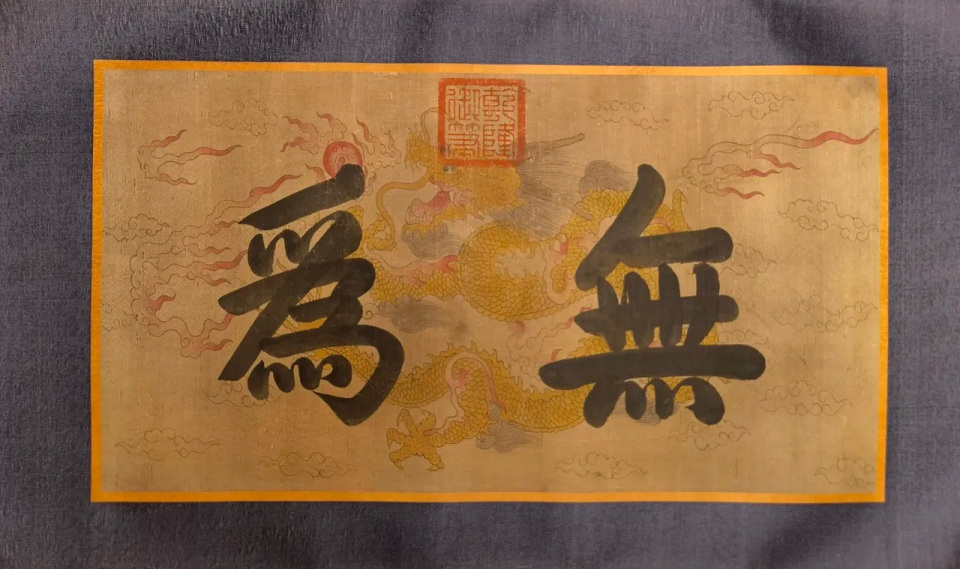 無爲
乾隆
御筆